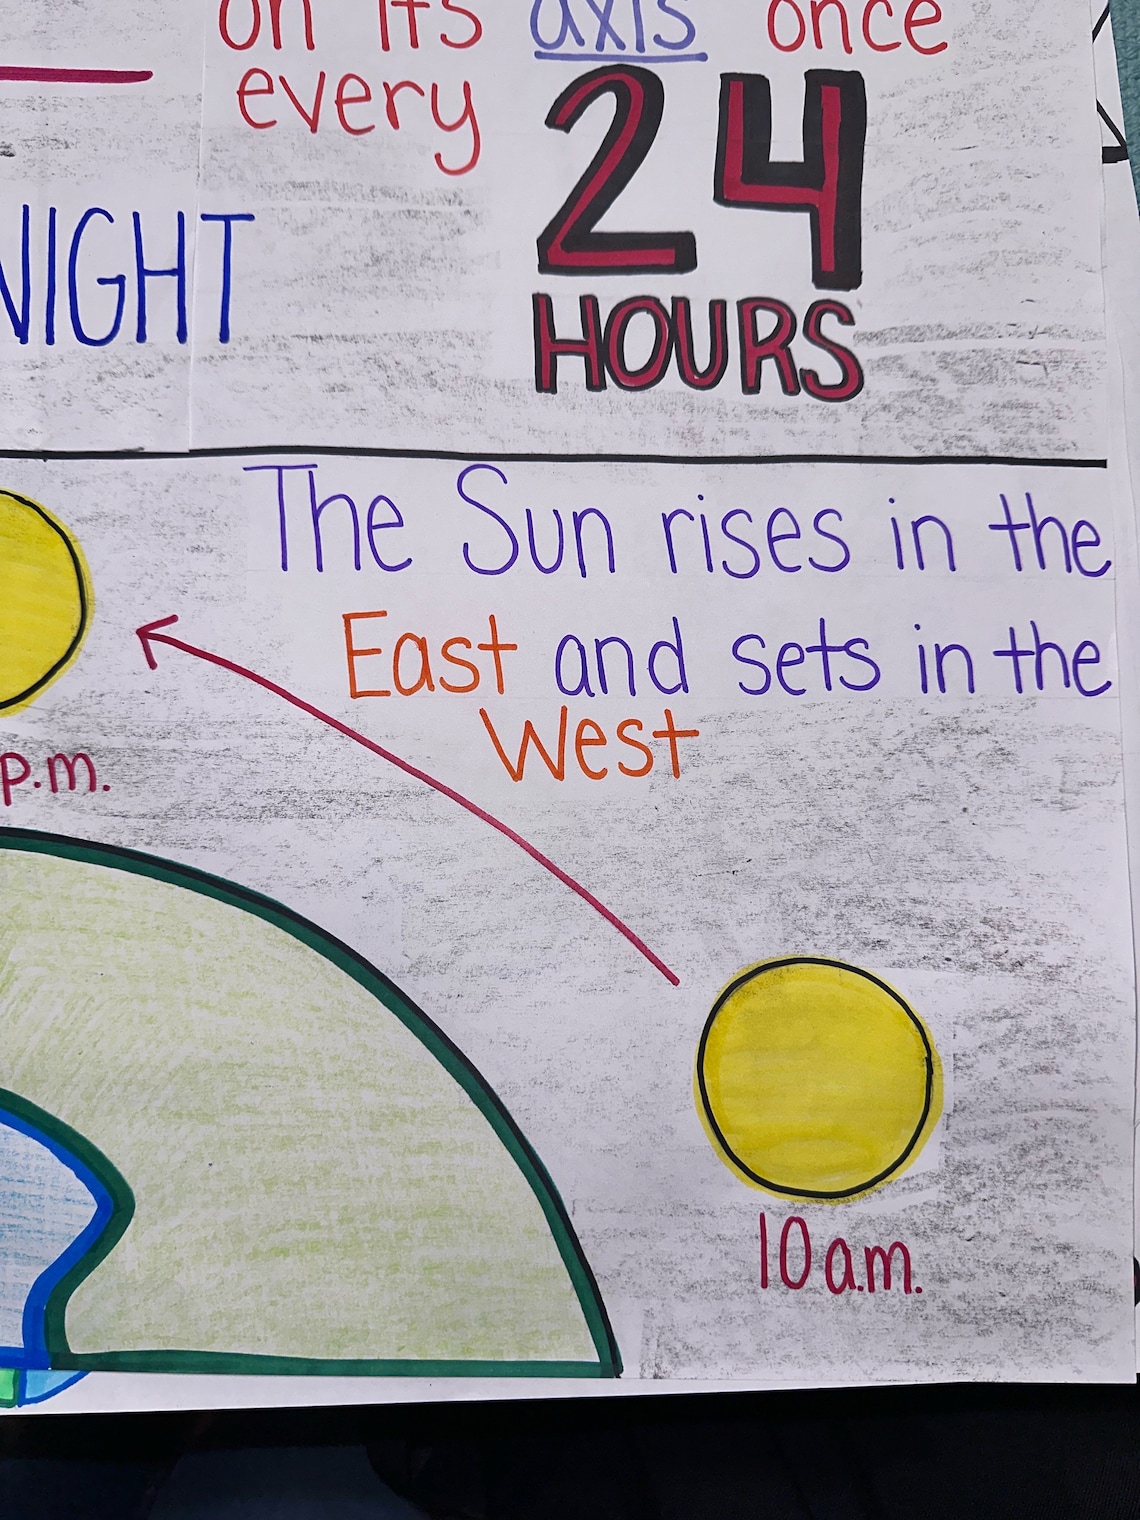 on its axis once
every
24
HOURS
NIGHT
The Sun rises in the
East and sets in the
West
p.m.
10 a.m.